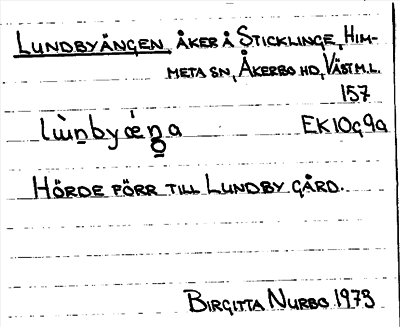 LUNDBYÄNGEN, ÅKER Å STICKLINGE, HIM-
META SN, ÅKERBO HD, VÄSTML.
157
lùn̲byǽŋ̲a EK10g9a
HÖRDE FÖRR TILL LUNDBY GÅRD.
BIRGITTA NURBO 1973